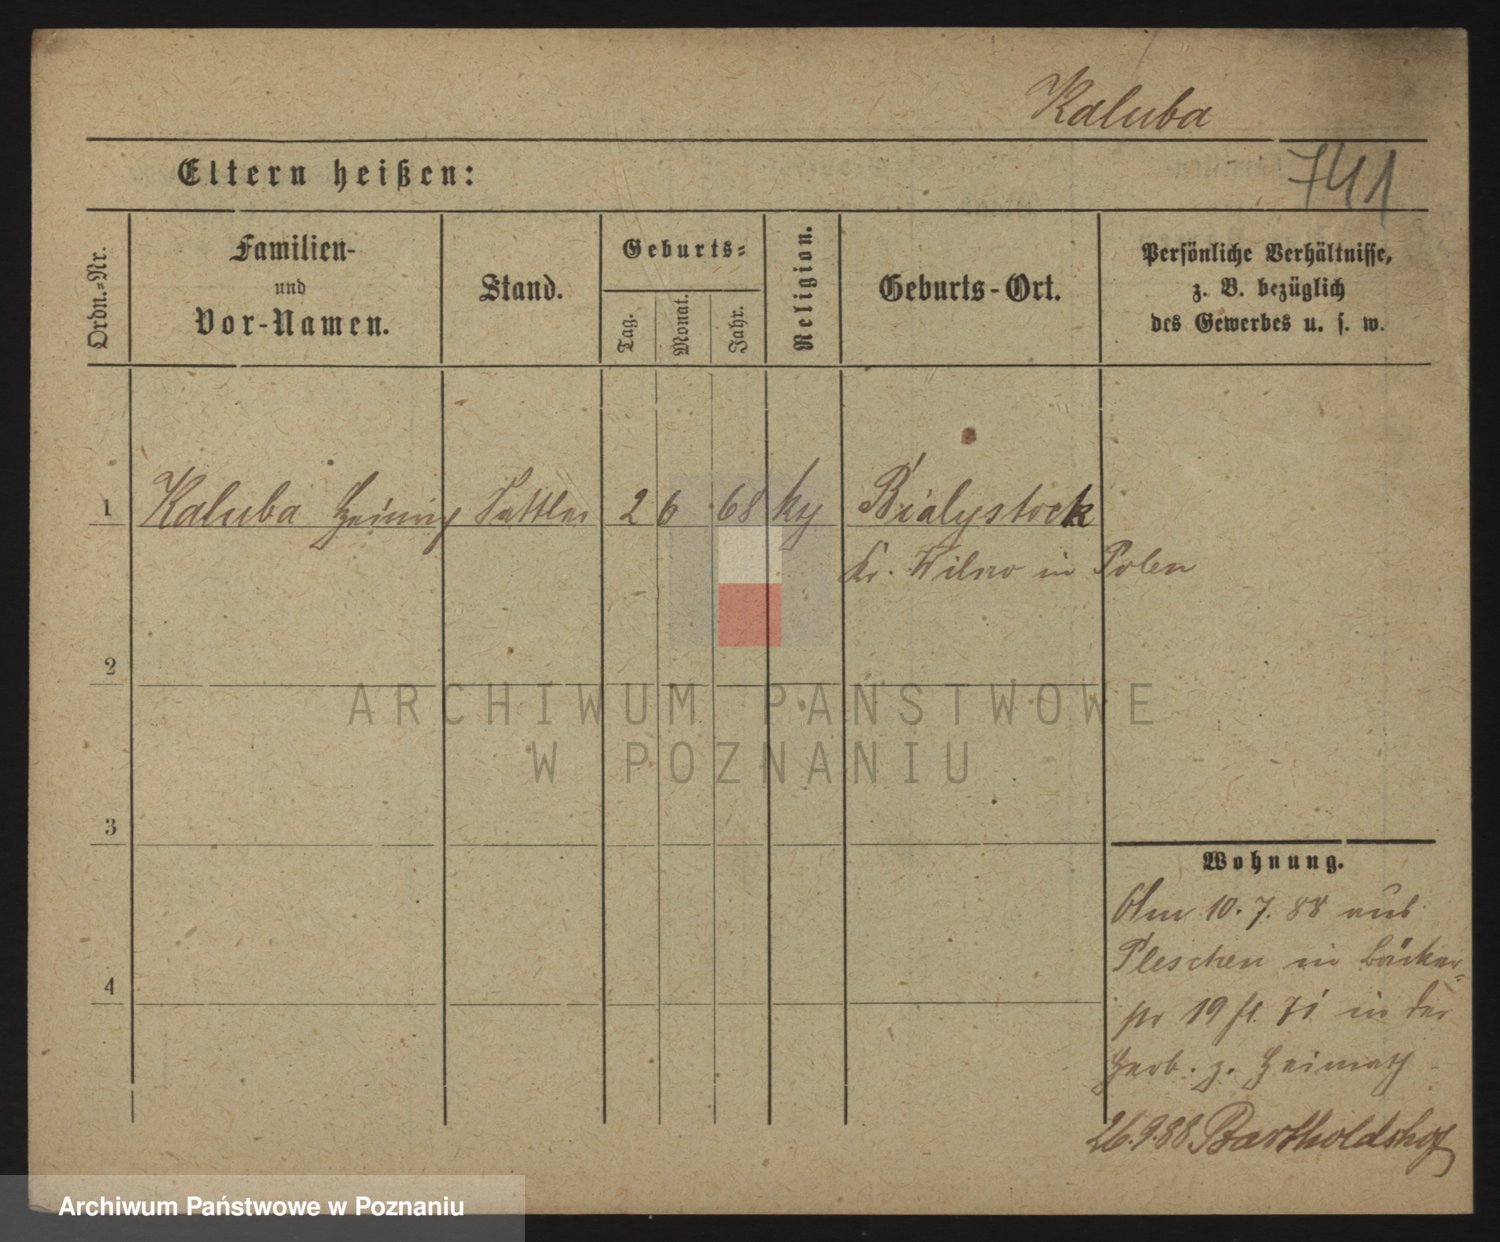 Kaluba
Eltern heißen:
741
Ordn.-Nr.
Familien-
und
Vor-Namen.
Stand.
Geburts-
Tag.
Monat.
Jahr.
Religion.
Geburts-Ort.
Persönliche Verhältnisse,
z. B. bezüglich
des Gewerbes u. s. w.
1 Kaluba Heinrich Sattler 2 6 68 ky Bialystock
Kr. Wilno in Polen
2
ARCHIWUM PAŃSTWOWE
W POZNANIU
3
4
Wohnung.
Am 10. 7. 88 aus
Pleschen in Bäcker-
str 19 in der
Herb. z. Heimath
26.9.88 Bartholdshof
Archiwum Państwowe w Poznaniu